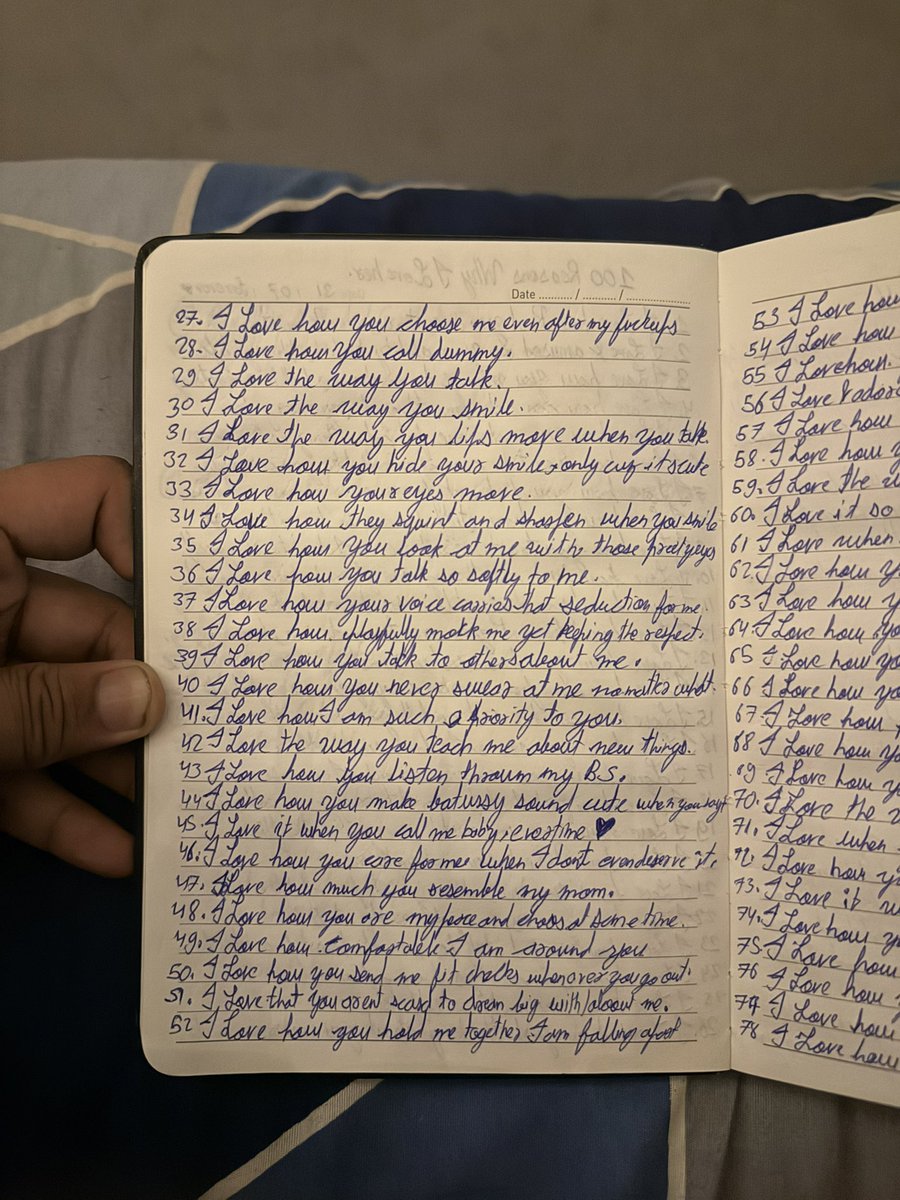 Date ......... / ......... / .................
27. I Love how you choose me even after my fuckups
28. I Love how you call dummy.
29 I Love the way you talk.
30 I Love the way you smile.
31 I Love the way you lips move when you talk.
32 I Love how you hide your smile, only cuz it's cute
33 I Love how your eyes move.
34 I Love how they squint and sharpen when you smile
35 I Love how you look at me with those pretty eyes
36 I Love how you talk so softly to me.
37 I Love how your voice carries that seduction for me.
38 I Love how playfully mock me yet keeping the respect.
39 I Love how you talk to others about me.
40 I Love how you never swear at me no matter what.
41. I Love how I am such a priority to you.
42 I Love the way you teach me about new things.
43 I Love how you listen my B.S.
44 I Love how you make sound cute when you say it
45. I Love it when you call me baby, everytime ♥
46. I Love how you care for me when I dont even deserve it.
47. I Love how much you resemble my mom.
48. I Love how you are my peace and chaos at same time.
49. I Love how comfortable I am around you
50. I Love how you send me fit checks whenever you go out.
51. I Love that you arent scared to dream big with/about me.
52 I Love how you hold me together I am falling apart
53 I Love how
54 I Love how
55 I Love how.
56 I Love & adore
57 I Love how
58. I Love how
59. I Love the
60. I Love it so
61 I Love when
62. I Love how
63 I Love how
64. I Love how
65 I Love how you
66 I Love how you
67. I Love how
68 I Love how you
69 I Love how you
70. I Love the
71. I Love when
72. I Love how
73. I Love it
74. I Love how
75. I Love how
76 I Love how
77 I Love how
78 I Love how